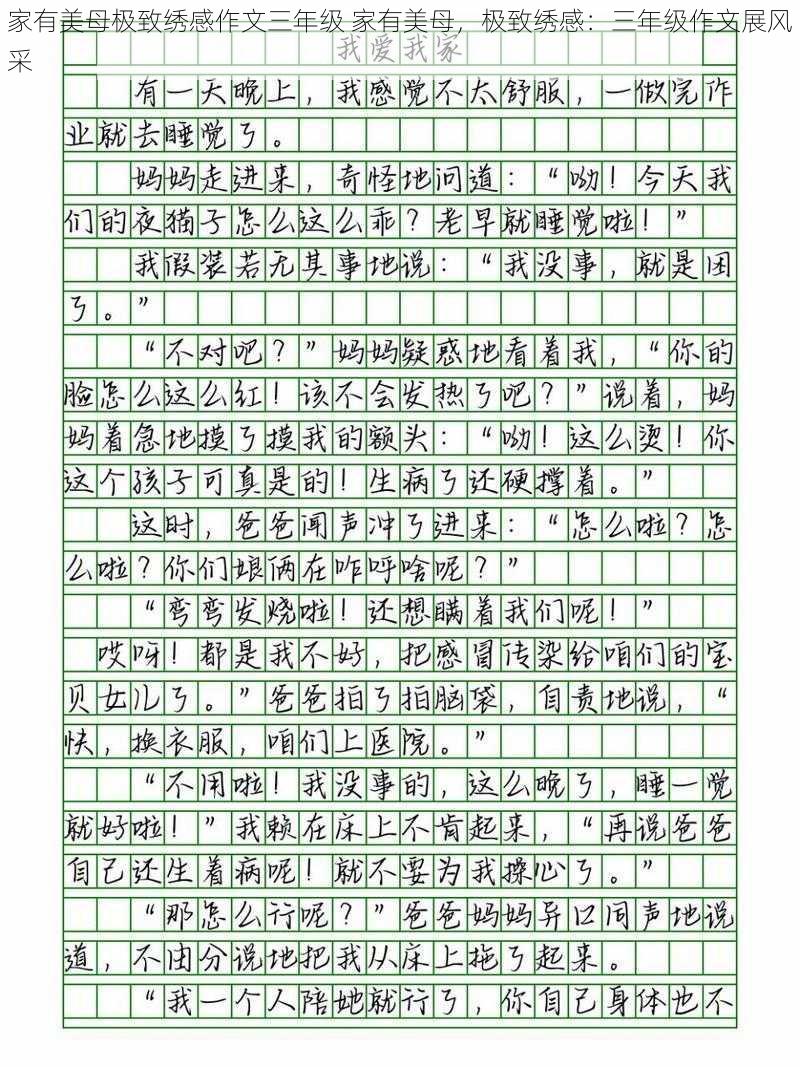 家有美母极致绣感作文三年级 家有美母，极致绣感：三年级作文展风
采
我爱我家
有一天晚上，我感觉不太舒服，一做完作
业就去睡觉了。
妈妈走进来，奇怪地问道：“呦！今天我
们的夜猫子怎么这么乖？老早就睡觉啦！”
我假装若无其事地说：“我没事，就是困
了。”
“不对吧？”妈妈疑惑地看着我，“你的
脸怎么这么红！该不会发热了吧？”说着，妈
妈着急地摸了摸我的额头：“呦！这么烫！你
这个孩子可真是的！生病了还硬撑着。”
这时，爸爸闻声冲了进来：“怎么啦？怎
么啦？你们娘俩在咋呼啥呢？”
“弯弯发烧啦！还想瞒着我们呢！”
哎呀！都是我不好，把感冒传染给咱们的宝
贝女儿了。”爸爸拍了拍脑袋，自责地说，“
快，换衣服，咱们上医院。”
“不用啦！我没事的，这么晚了，睡一觉
就好啦！”我赖在床上不肯起来，“再说爸爸
自己还生着病呢！就不要为我操心了。”
“那怎么行呢？”爸爸妈妈异口同声地说
道，不由分说地把我从床上拖了起来。
“我一个人陪她就行了，你自己身体也不